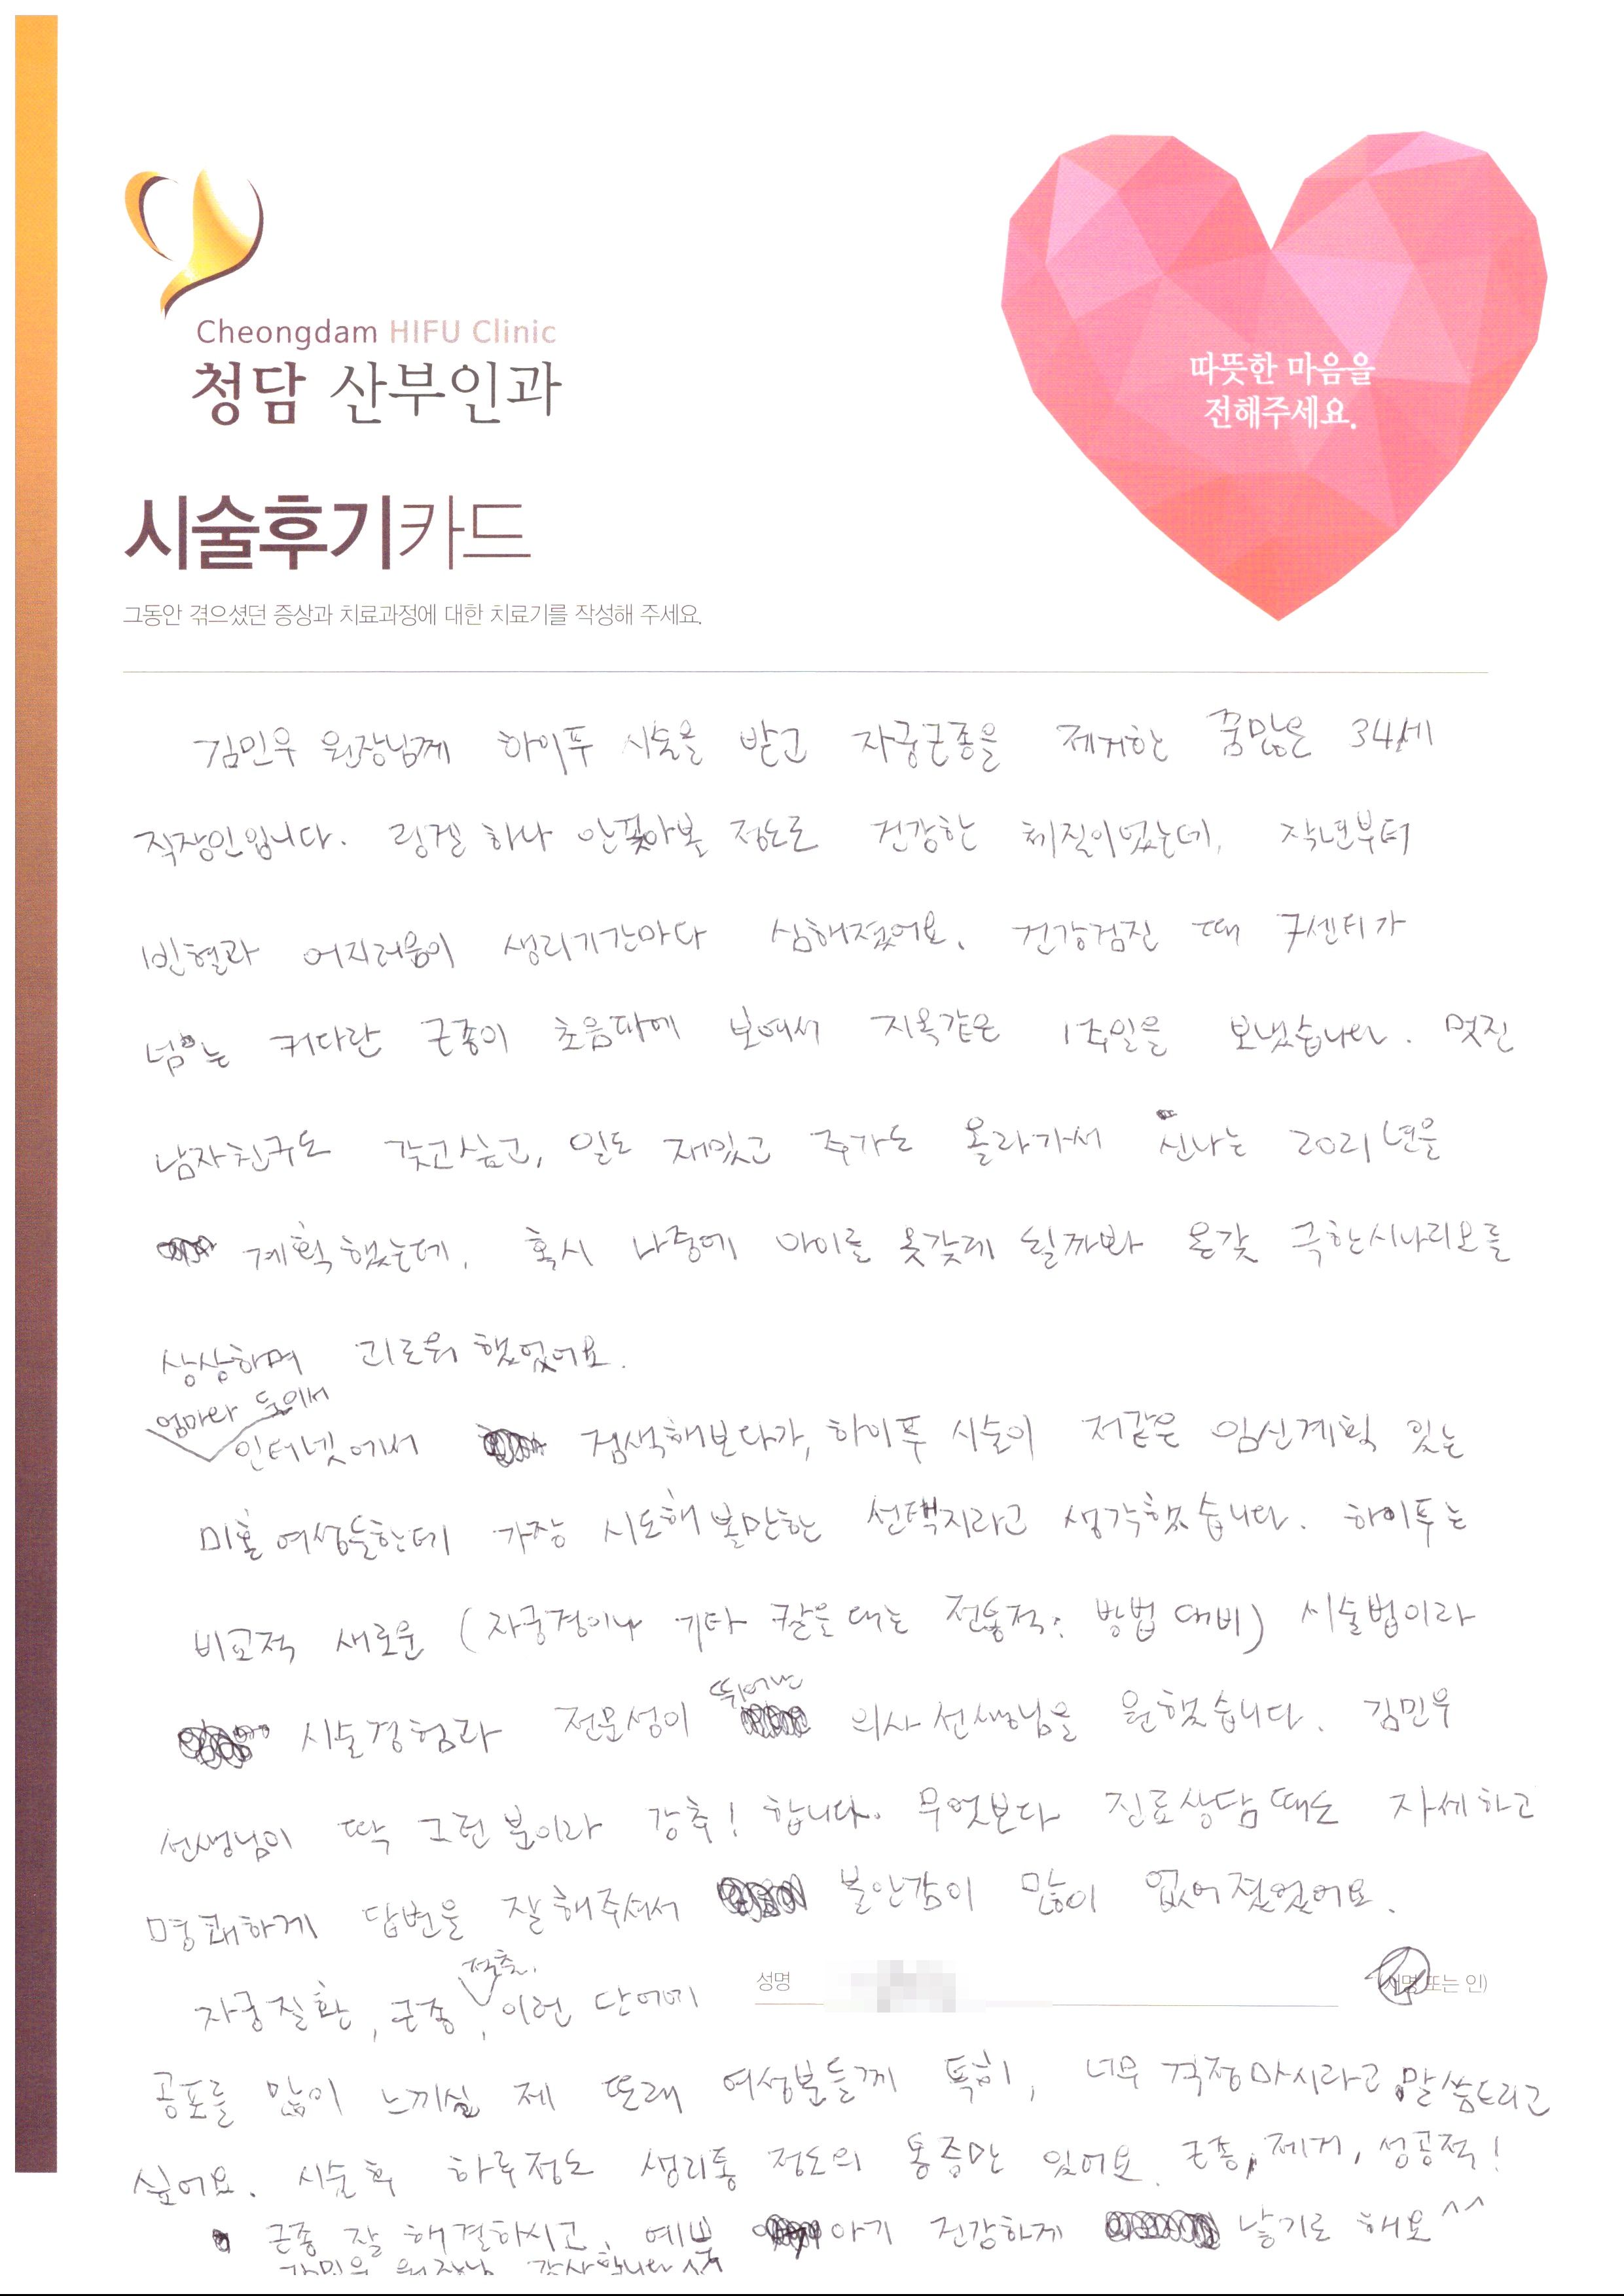 Cheongdam HIFU Clinic
청담 산부인과
따뜻한 마음을
전해주세요.
시술후기카드
그동안 겪으셨던 증상과 치료과정에 대한 치료기를 작성해 주세요.
김민우 원장님께 하이푸 시술을 받고 자궁근종을 제거한 꿈많은 34세
직장인입니다. 링겔 하나 안꽂아볼 정도로 건강한 체질이었는데, 작년부터
빈혈과 어지러움이 생리기간마다 심해졌어요. 건강검진 때 7센티가
넘는 커다란 근종이 초음파에 보여서 지옥같은 1주일을 보냈습니다. 멋진
남자친구도 갖고싶고, 일도 재밌고 주가도 올라가서 신나는 2021년을
계획했는데, 혹시 나중에 아이를 못갖게 될까봐 온갖 극한시나리오를
상상하며 괴로워 했었어요.
엄마랑 둘이서
인터넷에서 검색해보다가, 하이푸 시술이 저같은 임신계획 있는
미혼 여성들한테 가장 시도해 볼만한 선택지라고 생각했습니다. 하이푸는
비교적 새로운 (자궁경이나 기타 칼을 대는 전통적인 방법 대비) 시술법이라
시술경험과 전문성이 뛰어난 의사선생님을 원했습니다. 김민우
선생님이 딱 그런 분이라 강추! 합니다. 무엇보다 진료상담 때도 자세하고
명쾌하게 답변을 잘해주셔서 불안감이 많이 없어졌었어요.
성명 (서명 또는 인)
자궁질환, 근종, 적출, 이런 단어에
공포를 많이 느끼실 제 또래 여성분들께 특히, 너무 걱정마시라고 말씀드리고
싶어요. 시술 후 하루정도 생리통 정도의 통증만 있어요. 근종, 제거, 성공적!
근종 잘 해결하시고, 예쁜 아기 건강하게 낳기로 해요^^
김민우 원장님 감사합니다